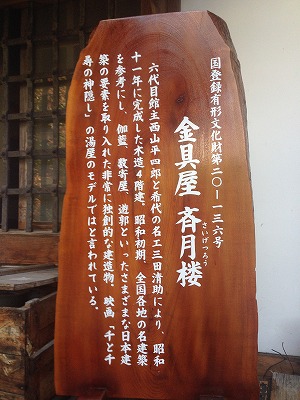 国登録有形文化財第二〇－一三六号
金具屋 斉月楼
さいげつろう
六代目館主西山平四郎と希代の名工三田清助により、昭和
十一年に完成した木造4階建。昭和初期、全国各地の名建築
を参考にし、伽藍、数寄屋、遊郭といったさまざまな日本建
築の要素を取り入れた非常に独創的な建造物。映画「千と千
尋の神隠し」の湯屋のモデルではと言われている。